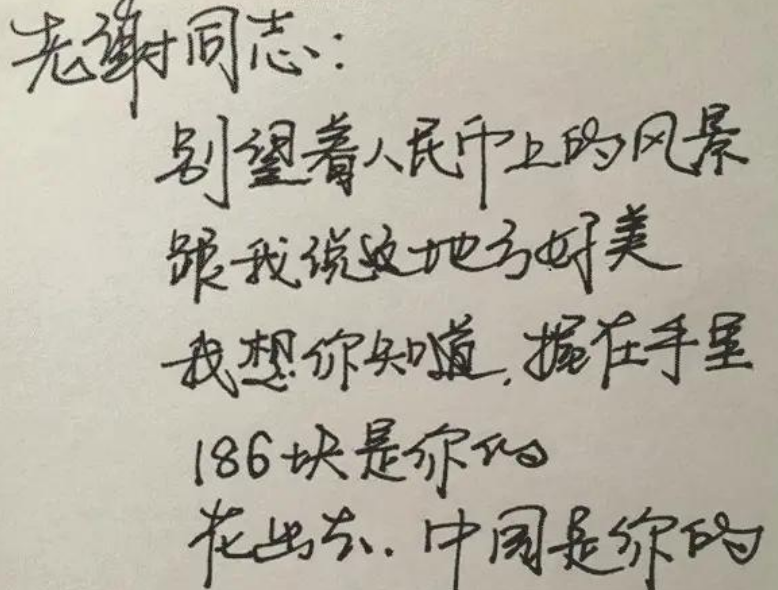 老谢同志：
别望着人民币上的风景
跟我说这地方好美
我想你知道，握在手里
186块是你的
花出去，中国是你的